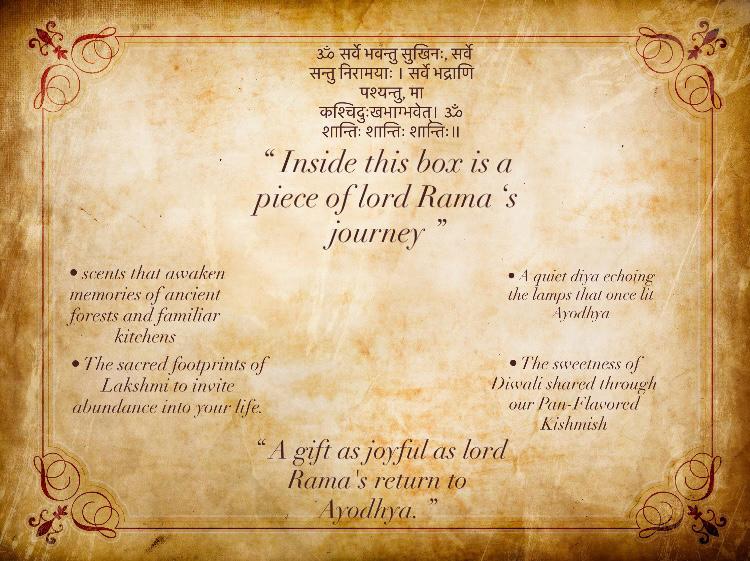 ॐ सर्वे भवन्तु सुखिनः, सर्वे
सन्तु निरामयाः । सर्वे भद्राणि
पश्यन्तु, मा
कश्चिदुःखभाग्भवेत्। ॐ
शान्तिः शान्तिः शान्तिः॥
“ Inside this box is a
piece of lord Rama ‘s
journey ”
• scents that awaken
memories of ancient
forests and familiar
kitchens
• The sacred footprints of
Lakshmi to invite
abundance into your life.
• A quiet diya echoing
the lamps that once lit
Ayodhya
• The sweetness of
Diwali shared through
our Pan-Flavored
Kishmish
“ A gift as joyful as lord
Rama's return to
Ayodhya. ”